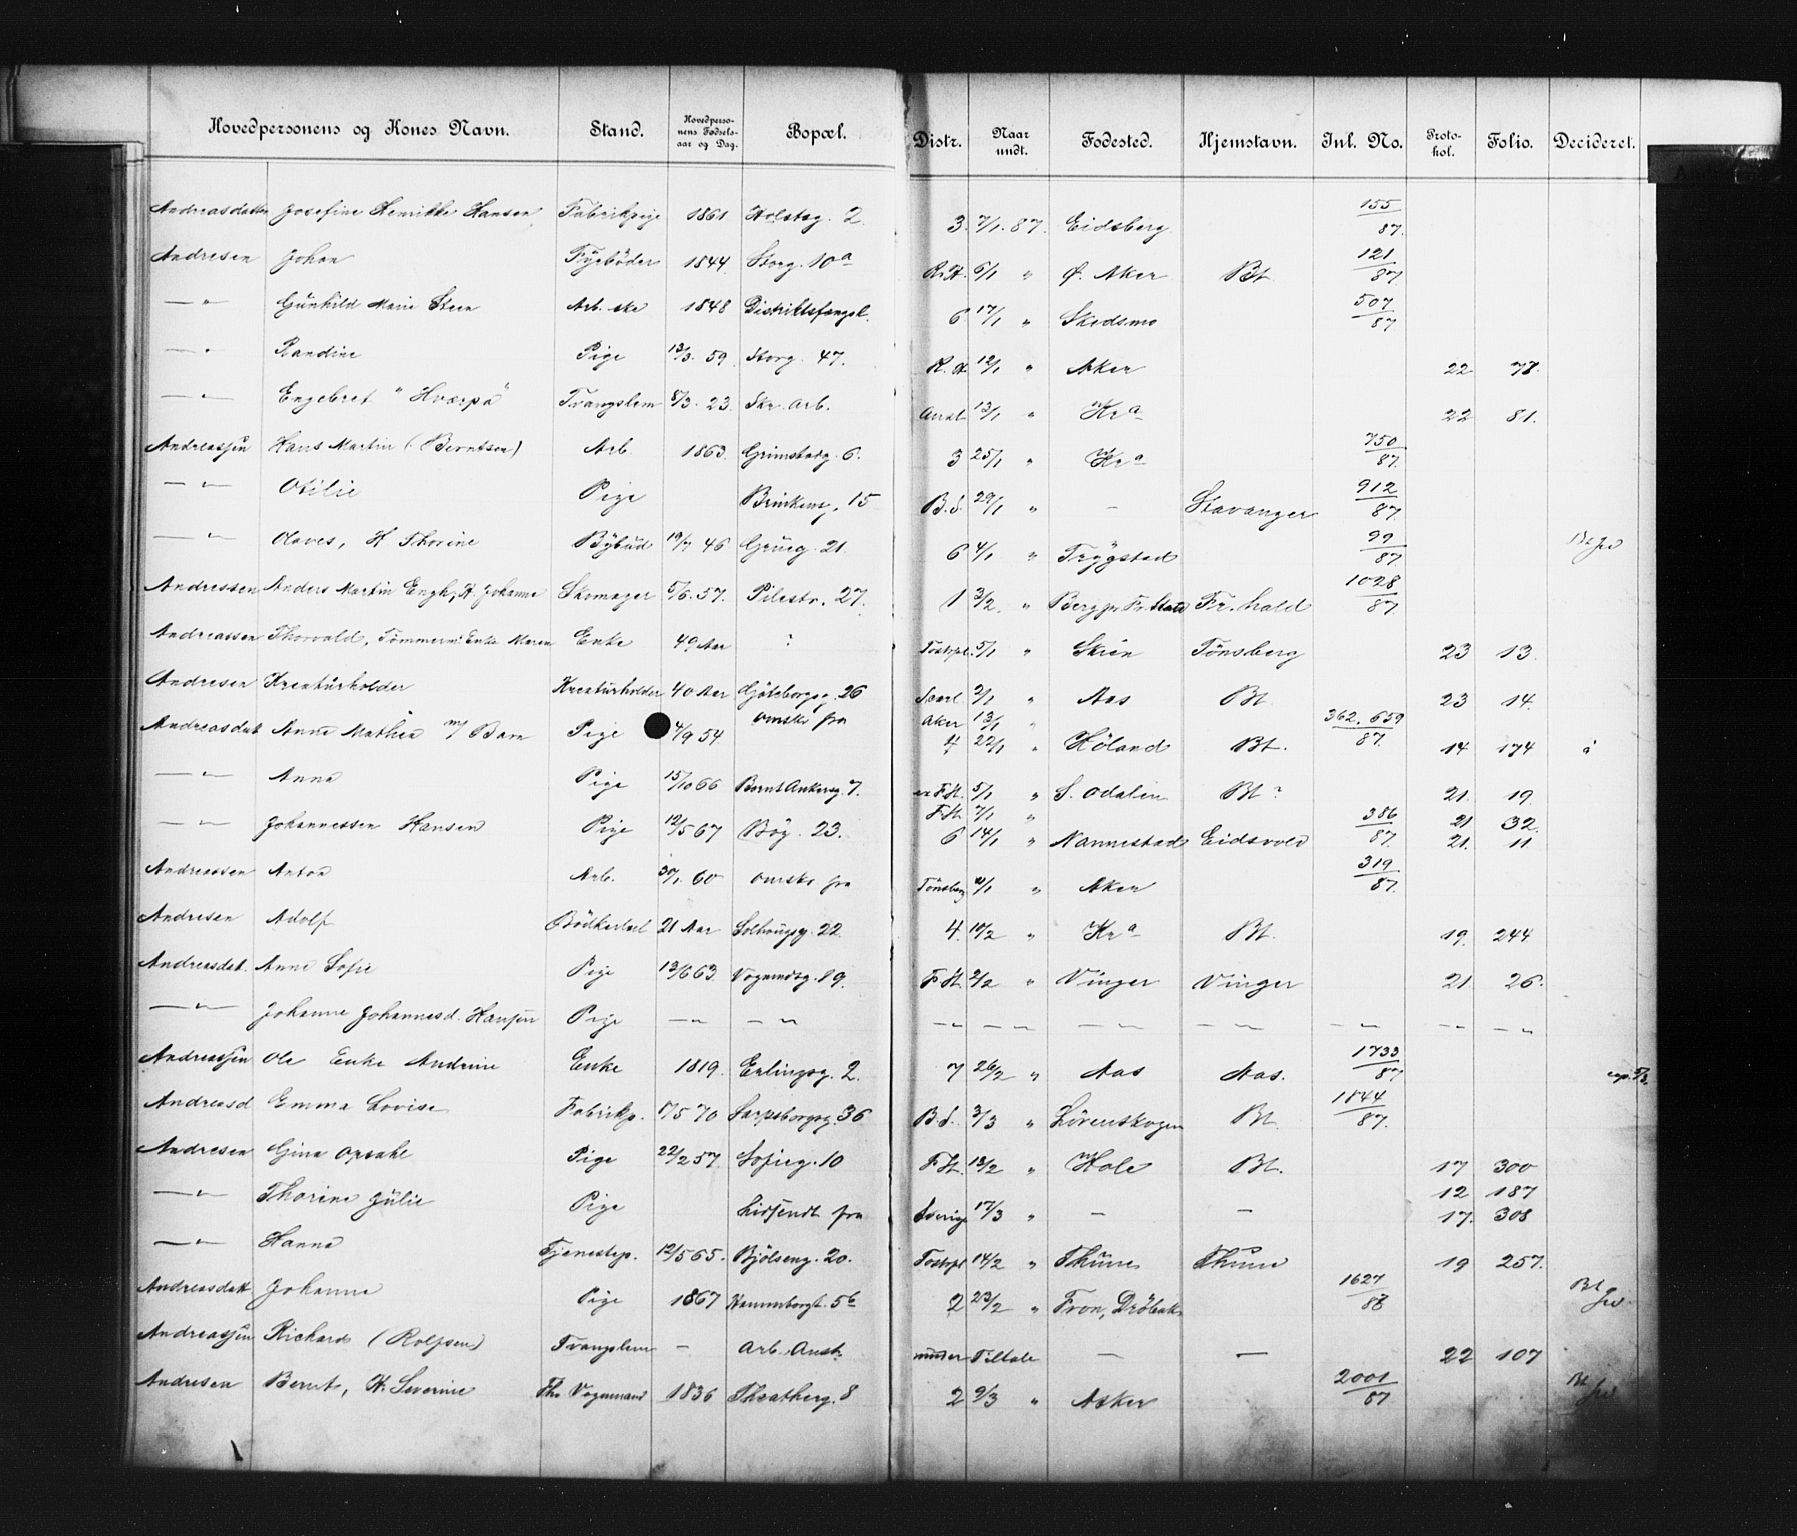 Hovedpersonens og Kones Navn. Stand. Hovedpersonens Fødselsaar og Dag. Bopæl. Distr. Naar undt. Fødested. Hjemstavn. Inl. No. Protokol. Folio. Decideret.
Andreasdatter Josefine Henrikke Hansen Fabrikpige 1861 Holstsg. 2 3. 7/1. 87. Eidsberg 155/87.
Andresen Johan Fyrbøder 1844 Storg. 10a R.H. 6/1 " Ø. Aker Bt. 121/87
— " — Gunhild Marie Steen Arb. ske 1848 Distriktsfængsl. 6 17/1 " Skedsmo 507/87
— " Randine Pige 13/3. 59 Storg. 47. R.H. 12/1 " Aker 22 78.
— " — Engebret "Hværpa" Tvangslem 8/3. 23. Skr. Arb. Anst. 13/1 " Kra 22 81.
Andreassen Hans Martin (Berntsen) Arb. 1863. Grimstadg. 6. 3 25/1 " Kra 750/87.
— " — Otilie Pige Brinkeng. 15 B.S. 29/1 " — Stavanger 912/87.
— " — Olaves, H Thorine Bybud 19/7 46 Grüeg. 21. 6 4/1 " Trygstad 99/87
Andreassen Anders Martin Engh, H. Johanne Skomager 5/6. 57. Pilestr. 27. 1 3/2 " Berg pr Fr.stad Fr. hald 1028/87
Andreassen Thorvald, Tömmerm. Enke Maren Enke 49 Aar ? Tostrpl. 5/1 " Skien Tönsberg 23 13.
Andresen Kreaturholder Kreaturholder 40 Aar Göteborgsg. 26 2/1 " Aas Bt. 23 14.
Andreasdat Anne Mathea m/ Barn Pige 4/9 54 omsks fra Aker 13/1 " 362. 659/87.
4 22/1 " Høland Bt. 14 174
— " — Anna Pige 15/10 66 Bernt Ankersg. 7. F.H. 5/1 " S. Odalen Bt ? 21. 19.
F.H. 7/1 " 21 32.
— " — Johannessen Hansen Pige 12/5 67 Bög. 23. 6 14/1 " Nannestad Eidsvold 386/87. 21. 11
Andreassen Anton Arb. 30/1 60 omsks fra Tönsberg /1 " Aker 319/87.
Andresen Adolf Bödkerlærl 21 Aar Solhougsg. 22. 4. 10/2 " Kra Bt. 19. 244
Andreasdat. Anne Sofie Pige 13/6 63. Vognmdsg. 19. F.H. 2/2 " Vinger Vinger 21 26.
— " — Johanne Johannesd. Hansen Pige — " — " — " — " — " — " — " — " — "
Andreassen Ole Enke Andrine Enke 1819. Erlingsg. 2. 7 26/2 " Aas Aas. 1733/87
Andreasd Emma Lovise Fabrikp. 17/5 70 Sarpsborgsg. 36 B.S. 3/3 " Lörenskogen Bt. 1844/87.
Andresen Gina Opsahl Pige 22/2 57. Sofieg. 10 F.H. 13/2 " Hole Bt. 17 300
12 187
— " — Thorine Julie Pige hidsendt fra Sverige 17/3 " — — 17. 308
— " — Hanna Tjenestep. 12/5 65. Bjölseng. 20. Tostrpl 14/2 " Thune Thune 19 257.
Andreasdatt Johanna Pige 1867 Hammborgb. 5b 2 23/2 " Fron, Dröbak 1627/88
Andreassen Richard (Rolfsen) Tvangslem — Arb. Anst. under Tiltale — — 22 107
Andresen Bernt, H. Severine Fhv Vognmand 1836 Theatherg. 8 2 9/3 " Asker 2001/87